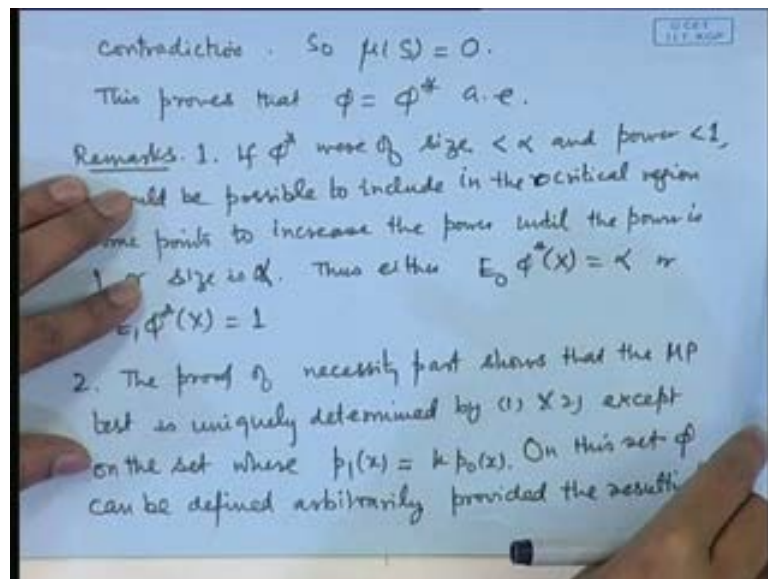 contradiction. So μ(S) = 0.
This proves that φ = φ* a.e.
Remarks. 1. If φ* were of size < α and power < 1,
be possible to include in the critical region
points to increase the power until the power is
size is α. Thus either E₀ φ*(X) = α or
φ*(X) = 1
2. The proof of necessity part shows that the MP
test is uniquely determined by (1) & (2) except
on the set where p₁(x) = k p₀(x). On this set φ
can be defined arbitrarily provided the